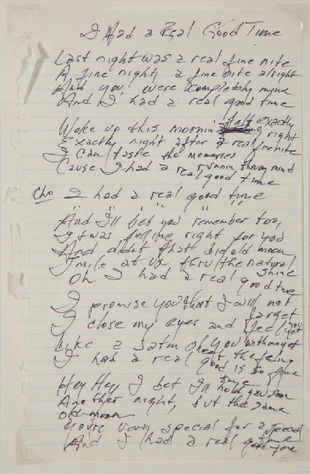 I Had a Real Good Time
Last night was a real fine nite
A fine night, a fine nite alright
And you, were completely myne
And I had a real good time
Woke up this mornin felt exactly
right
Exactly night after a real fine nite
I can taste the memories
runnin thru my mind
Cause I had a real good time
Cho I had a real good time
" " " " "
And I'll bet you remember too,
It was feeling right for you
And didnt that old moon
Smile at us thru the natural
shine
Oh I had a real good time
I promise you that I will not
forget
I close my eyes and feel you
yet
Like a satin of you with me yet
I had a real good time
but the feeling
good is so fine
Hey Hey, I bet I'll
time
have you soon
Another night, but the same
old moon
You're very special for a special
time
And I had a real good time